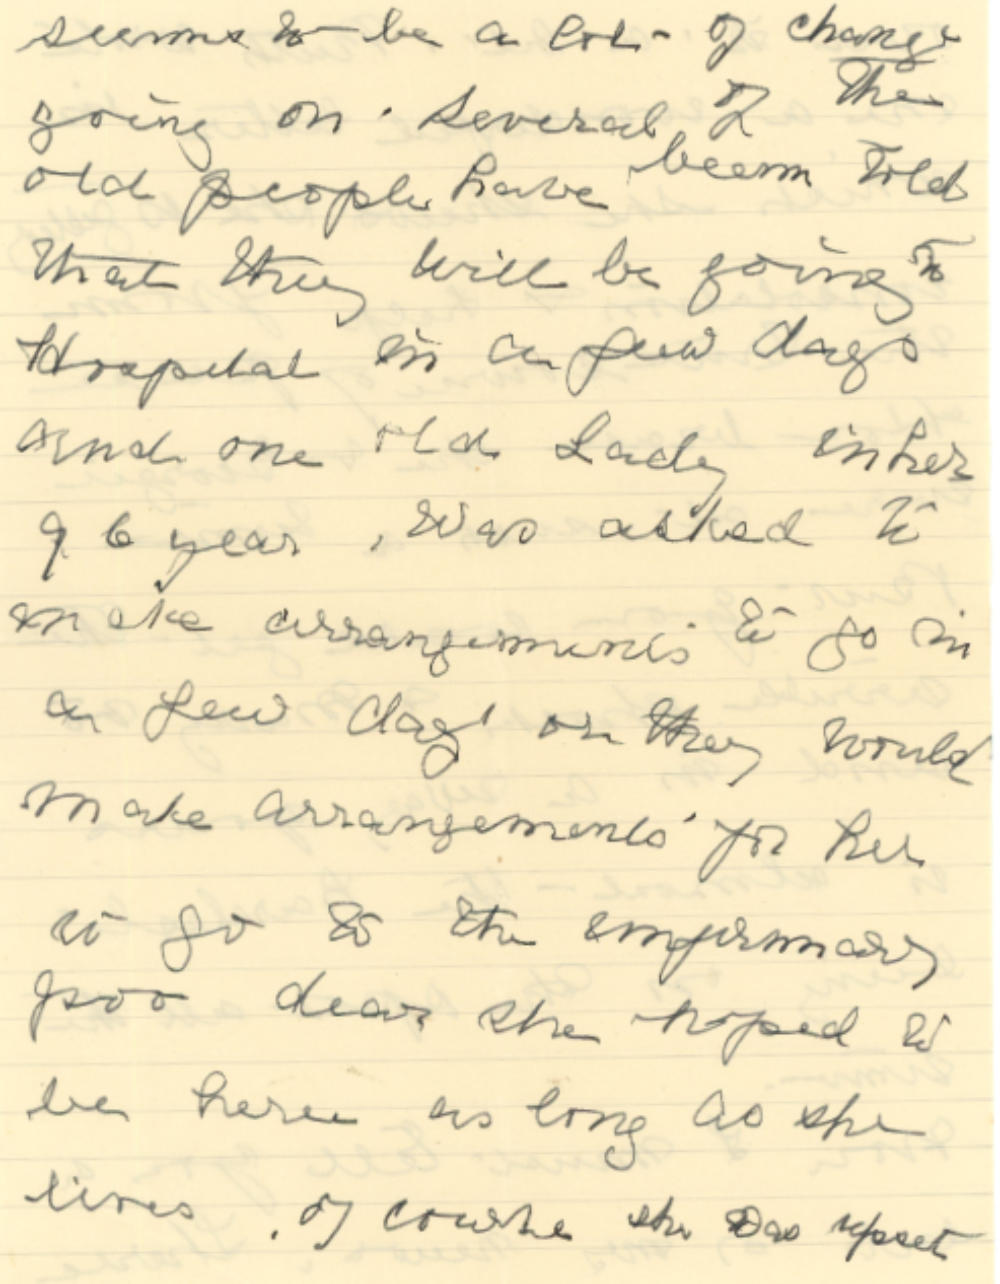 seems to be a lot of change
going on. Several of the
old people have beem told
that they will be going to
Hospital in a few days
and one old Lady in her
96 year, was asked to
make arrangements to go in
a few day or they would
make arrangements for her
to go to the imfirmary
poo dear she hoped to
be here as long as she
lives, of course she was upset